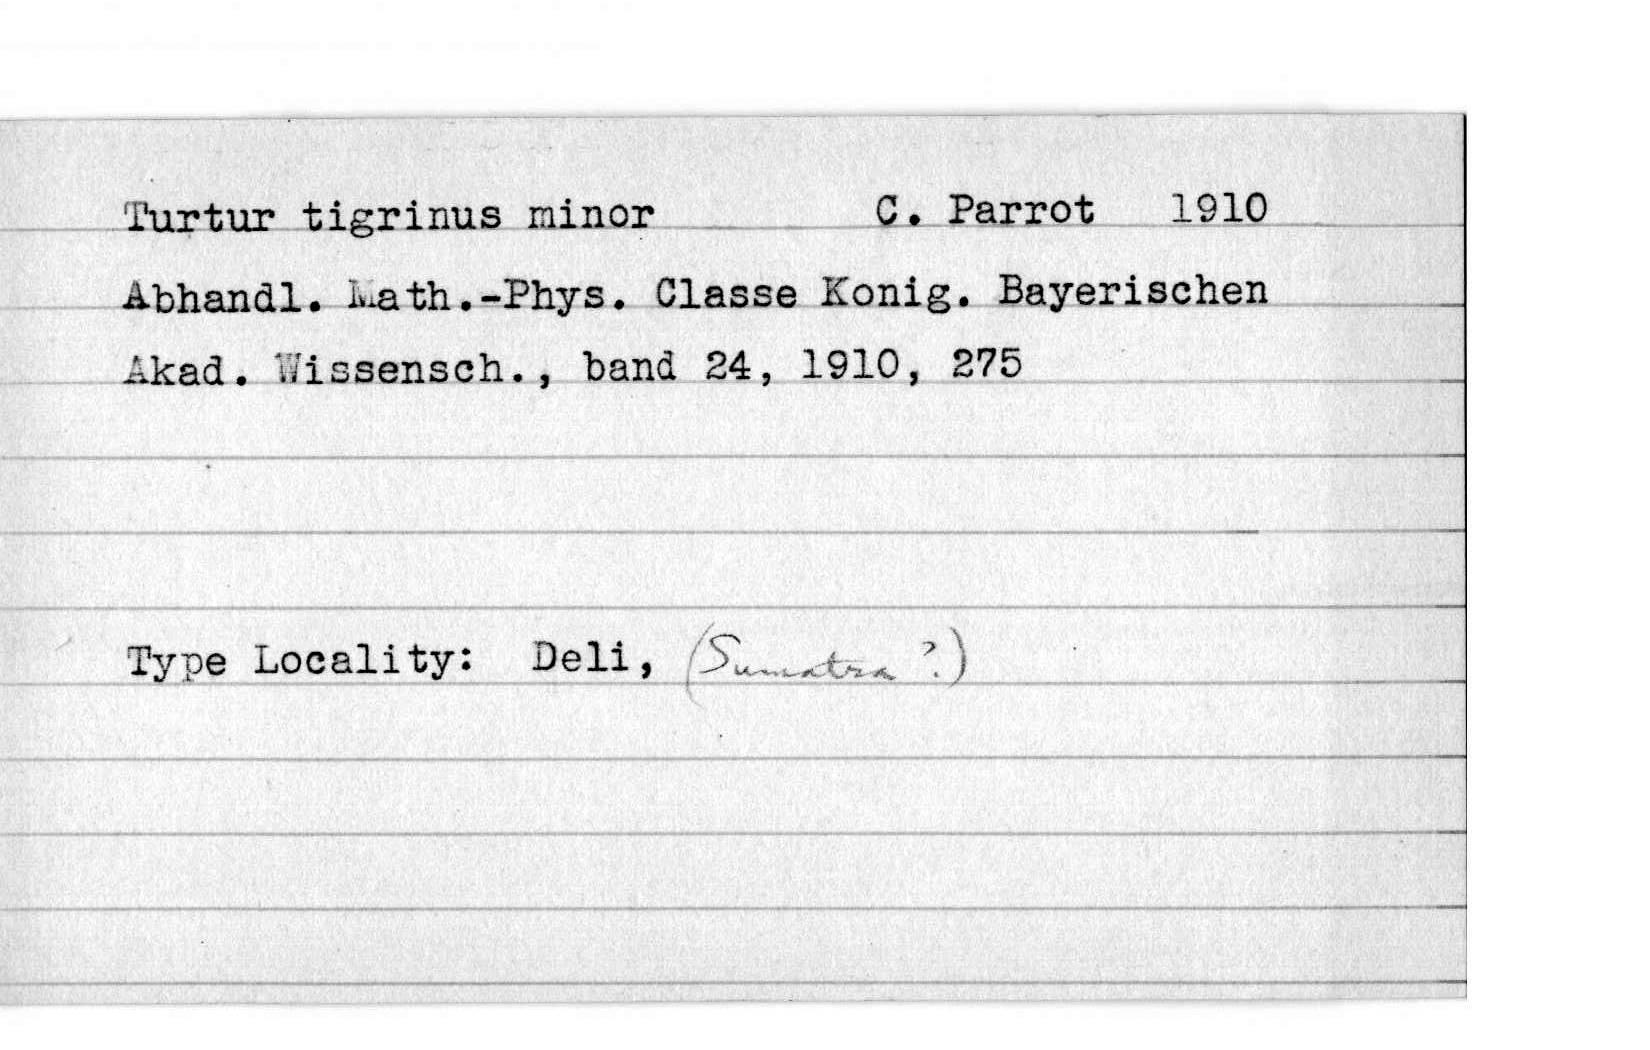 Turtur tigrinus minor C. Parrot 1910
Abhandl. Math.-Phys. Classe Konig. Bayerischen
Akad. Wissensch., band 24, 1910, 275
Type Locality: Deli, (Sumatra ?)